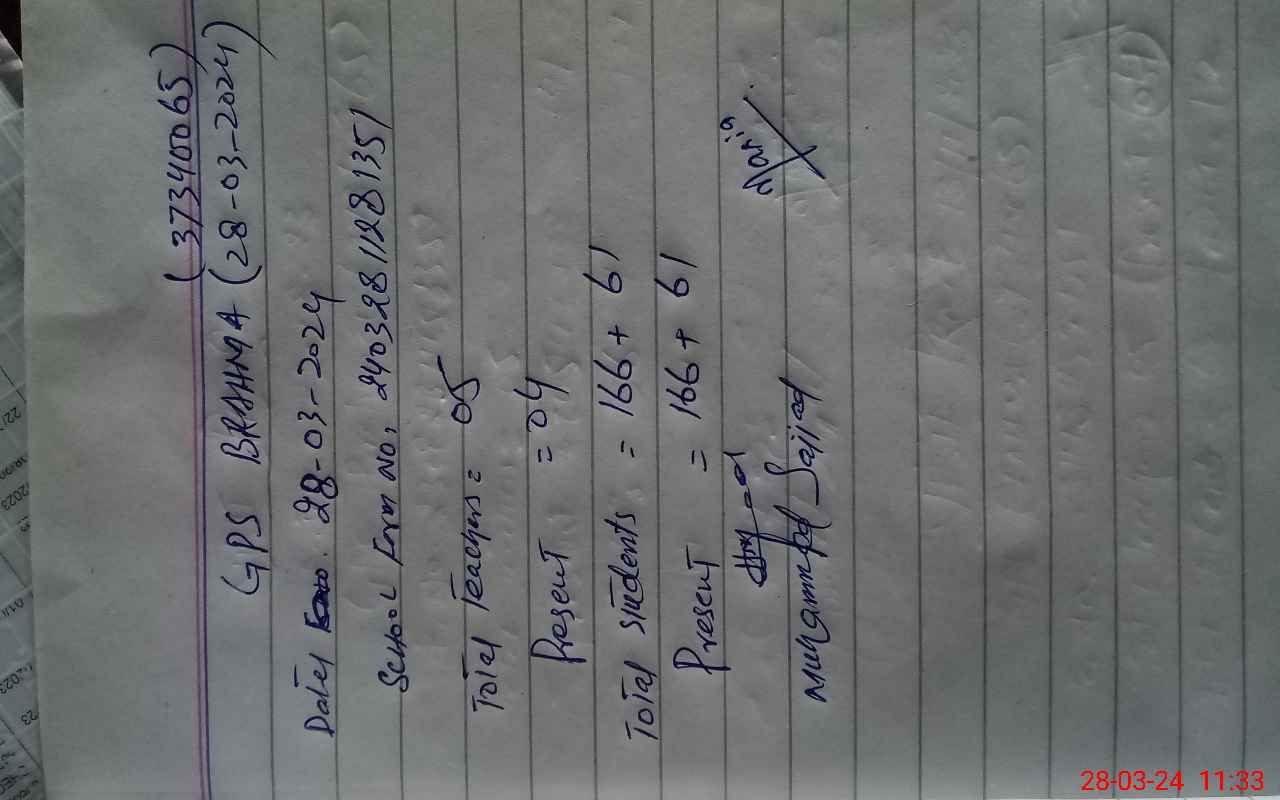 (37340065)
GPS BRAHMA (28-03-2024)
Dated 28-03-2024
School Form No, 24032811281351
Total Teachers = 05
Present = 04
Total students = 166 + 61
Present = 166 + 61
Muhammad Sajjad
28-03-24 11:33